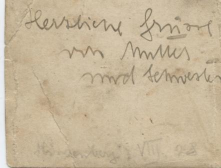 Herzliche Grüsse
von Mutter
und Schwester